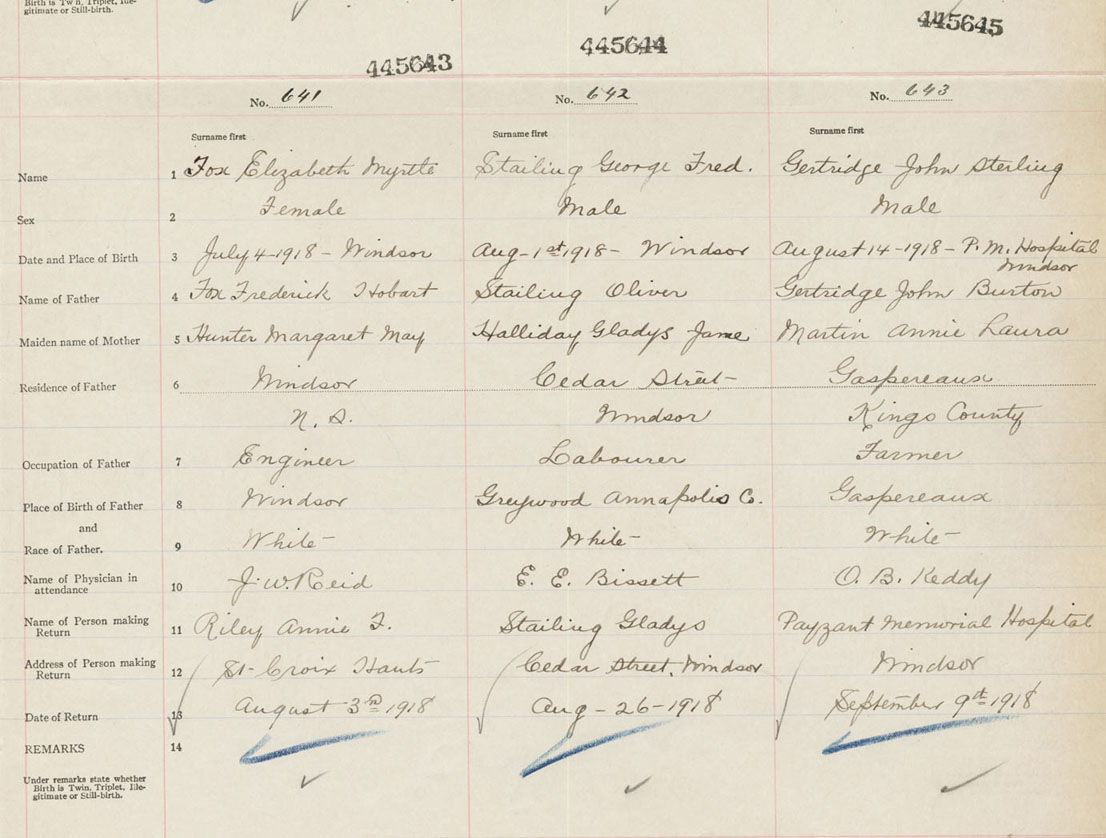 Birth is Twin, Triplet, Ille-
gitimate or Still-birth.
445643 445644 445645
No. 641 No. 642 No. 643
Surname first Surname first Surname first
Name 1 Fox Elizabeth Myrtle Stailing George Fred. Gertridge John Sterling
Sex 2 Female Male Male
Date and Place of Birth 3 July 4-1918 - Windsor Aug-1st 1918 - Windsor August 14-1918 - P.M. Hospital
Windsor
Name of Father 4 Fox Frederick Hobart Stailing Oliver Gertridge John Burton
Maiden name of Mother 5 Hunter Margaret May Halliday Gladys Jane Martin Annie Laura
Residence of Father 6 Windsor Cedar Street Gaspereaux
N. S. Windsor Kings County
Occupation of Father 7 Engineer Labourer Farmer
Place of Birth of Father 8 Windsor Greywood Annapolis C. Gaspereaux
and
Race of Father. 9 White White White
Name of Physician in
attendance 10 J. W. Reid E. E. Bissett O. B. Keddy
Name of Person making
Return 11 Riley Annie F. Stailing Gladys Payzant Memorial Hospital
Address of Person making
Return 12 St Croix Hants Cedar Street, Windsor Windsor
Date of Return 13 August 3rd 1918 Aug - 26 - 1918 September 9th 1918
REMARKS 14
Under remarks state whether
Birth is Twin, Triplet, Ille-
gitimate or Still-birth.